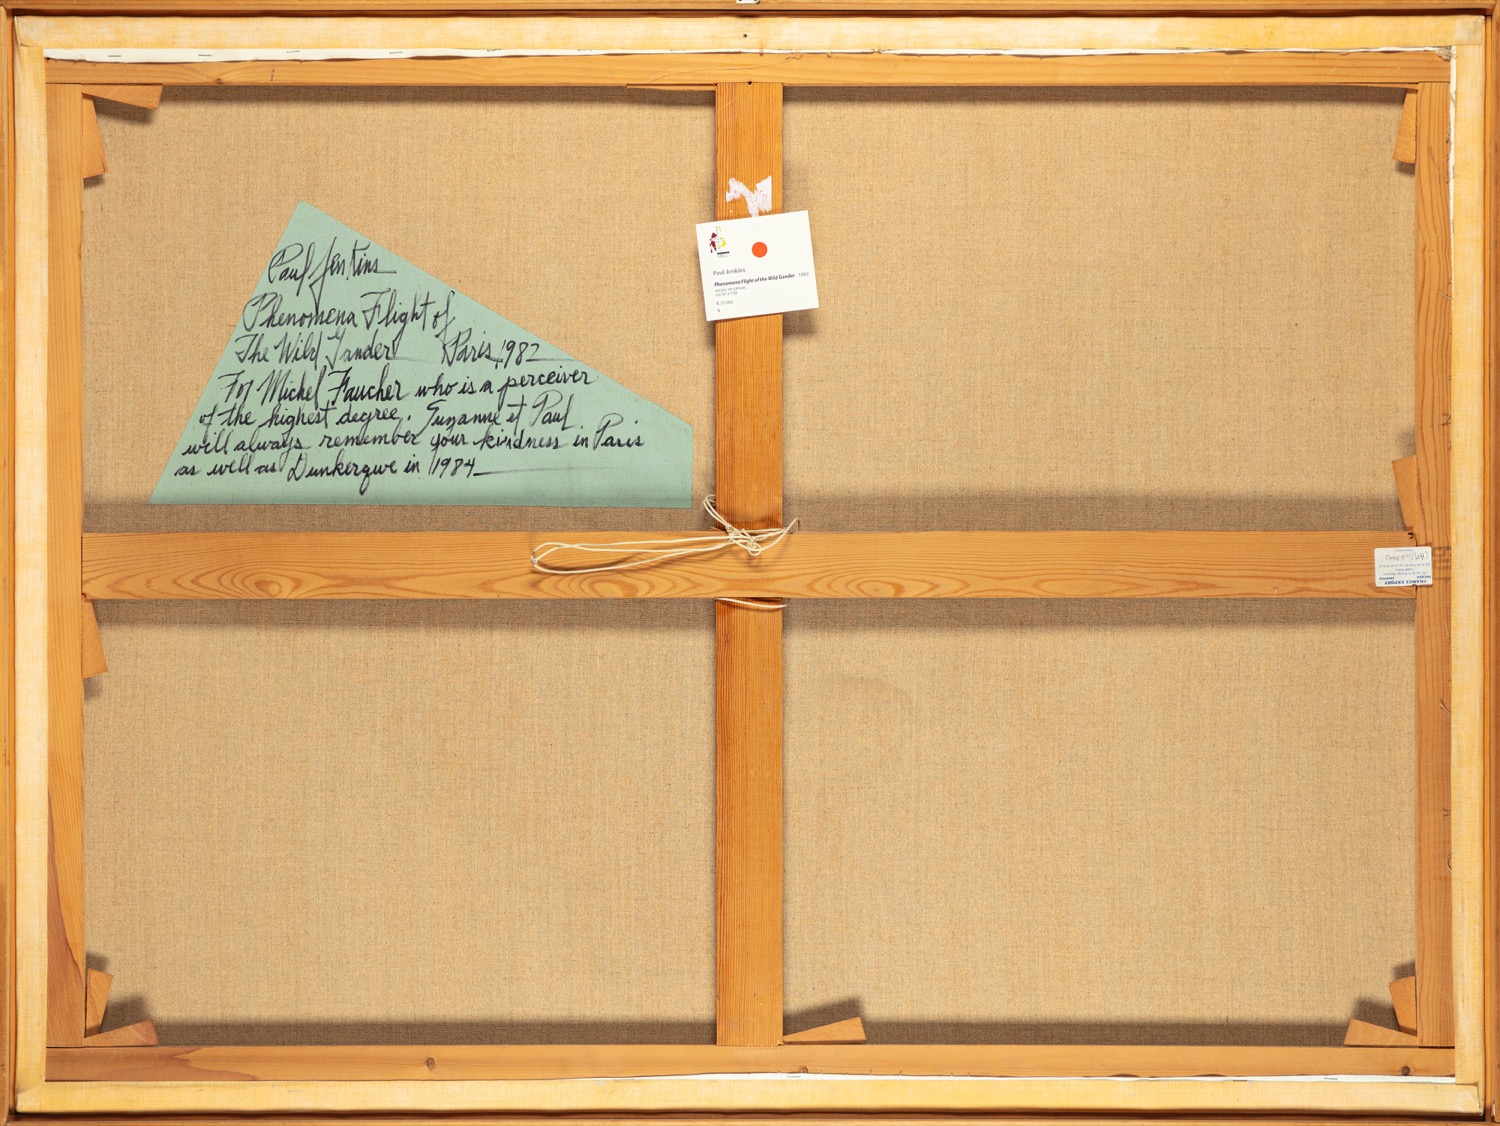 Paul Jenkins
Phenomena Flight of
The Wild Gander Paris, 1982
For Michel Faucher who is a perceiver
of the highest degree. Suzanne et Paul
will always remember your kindness in Paris
as well as Dunkerque in 1984
Paul Jenkins
Phenomena Flight of the Wild Gander 1982
acrylic on canvas
FRANCE EXPORT